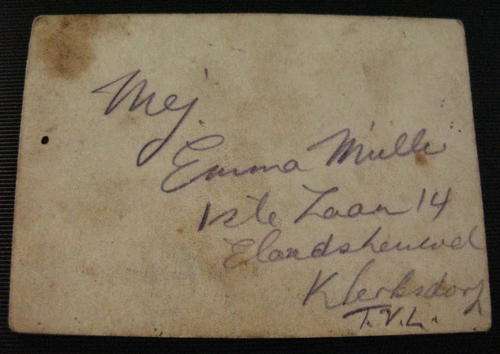 Mej.
Emma Muller
1ste Laan 14
Elandsheuvel
Klerksdorp
T.V.L.